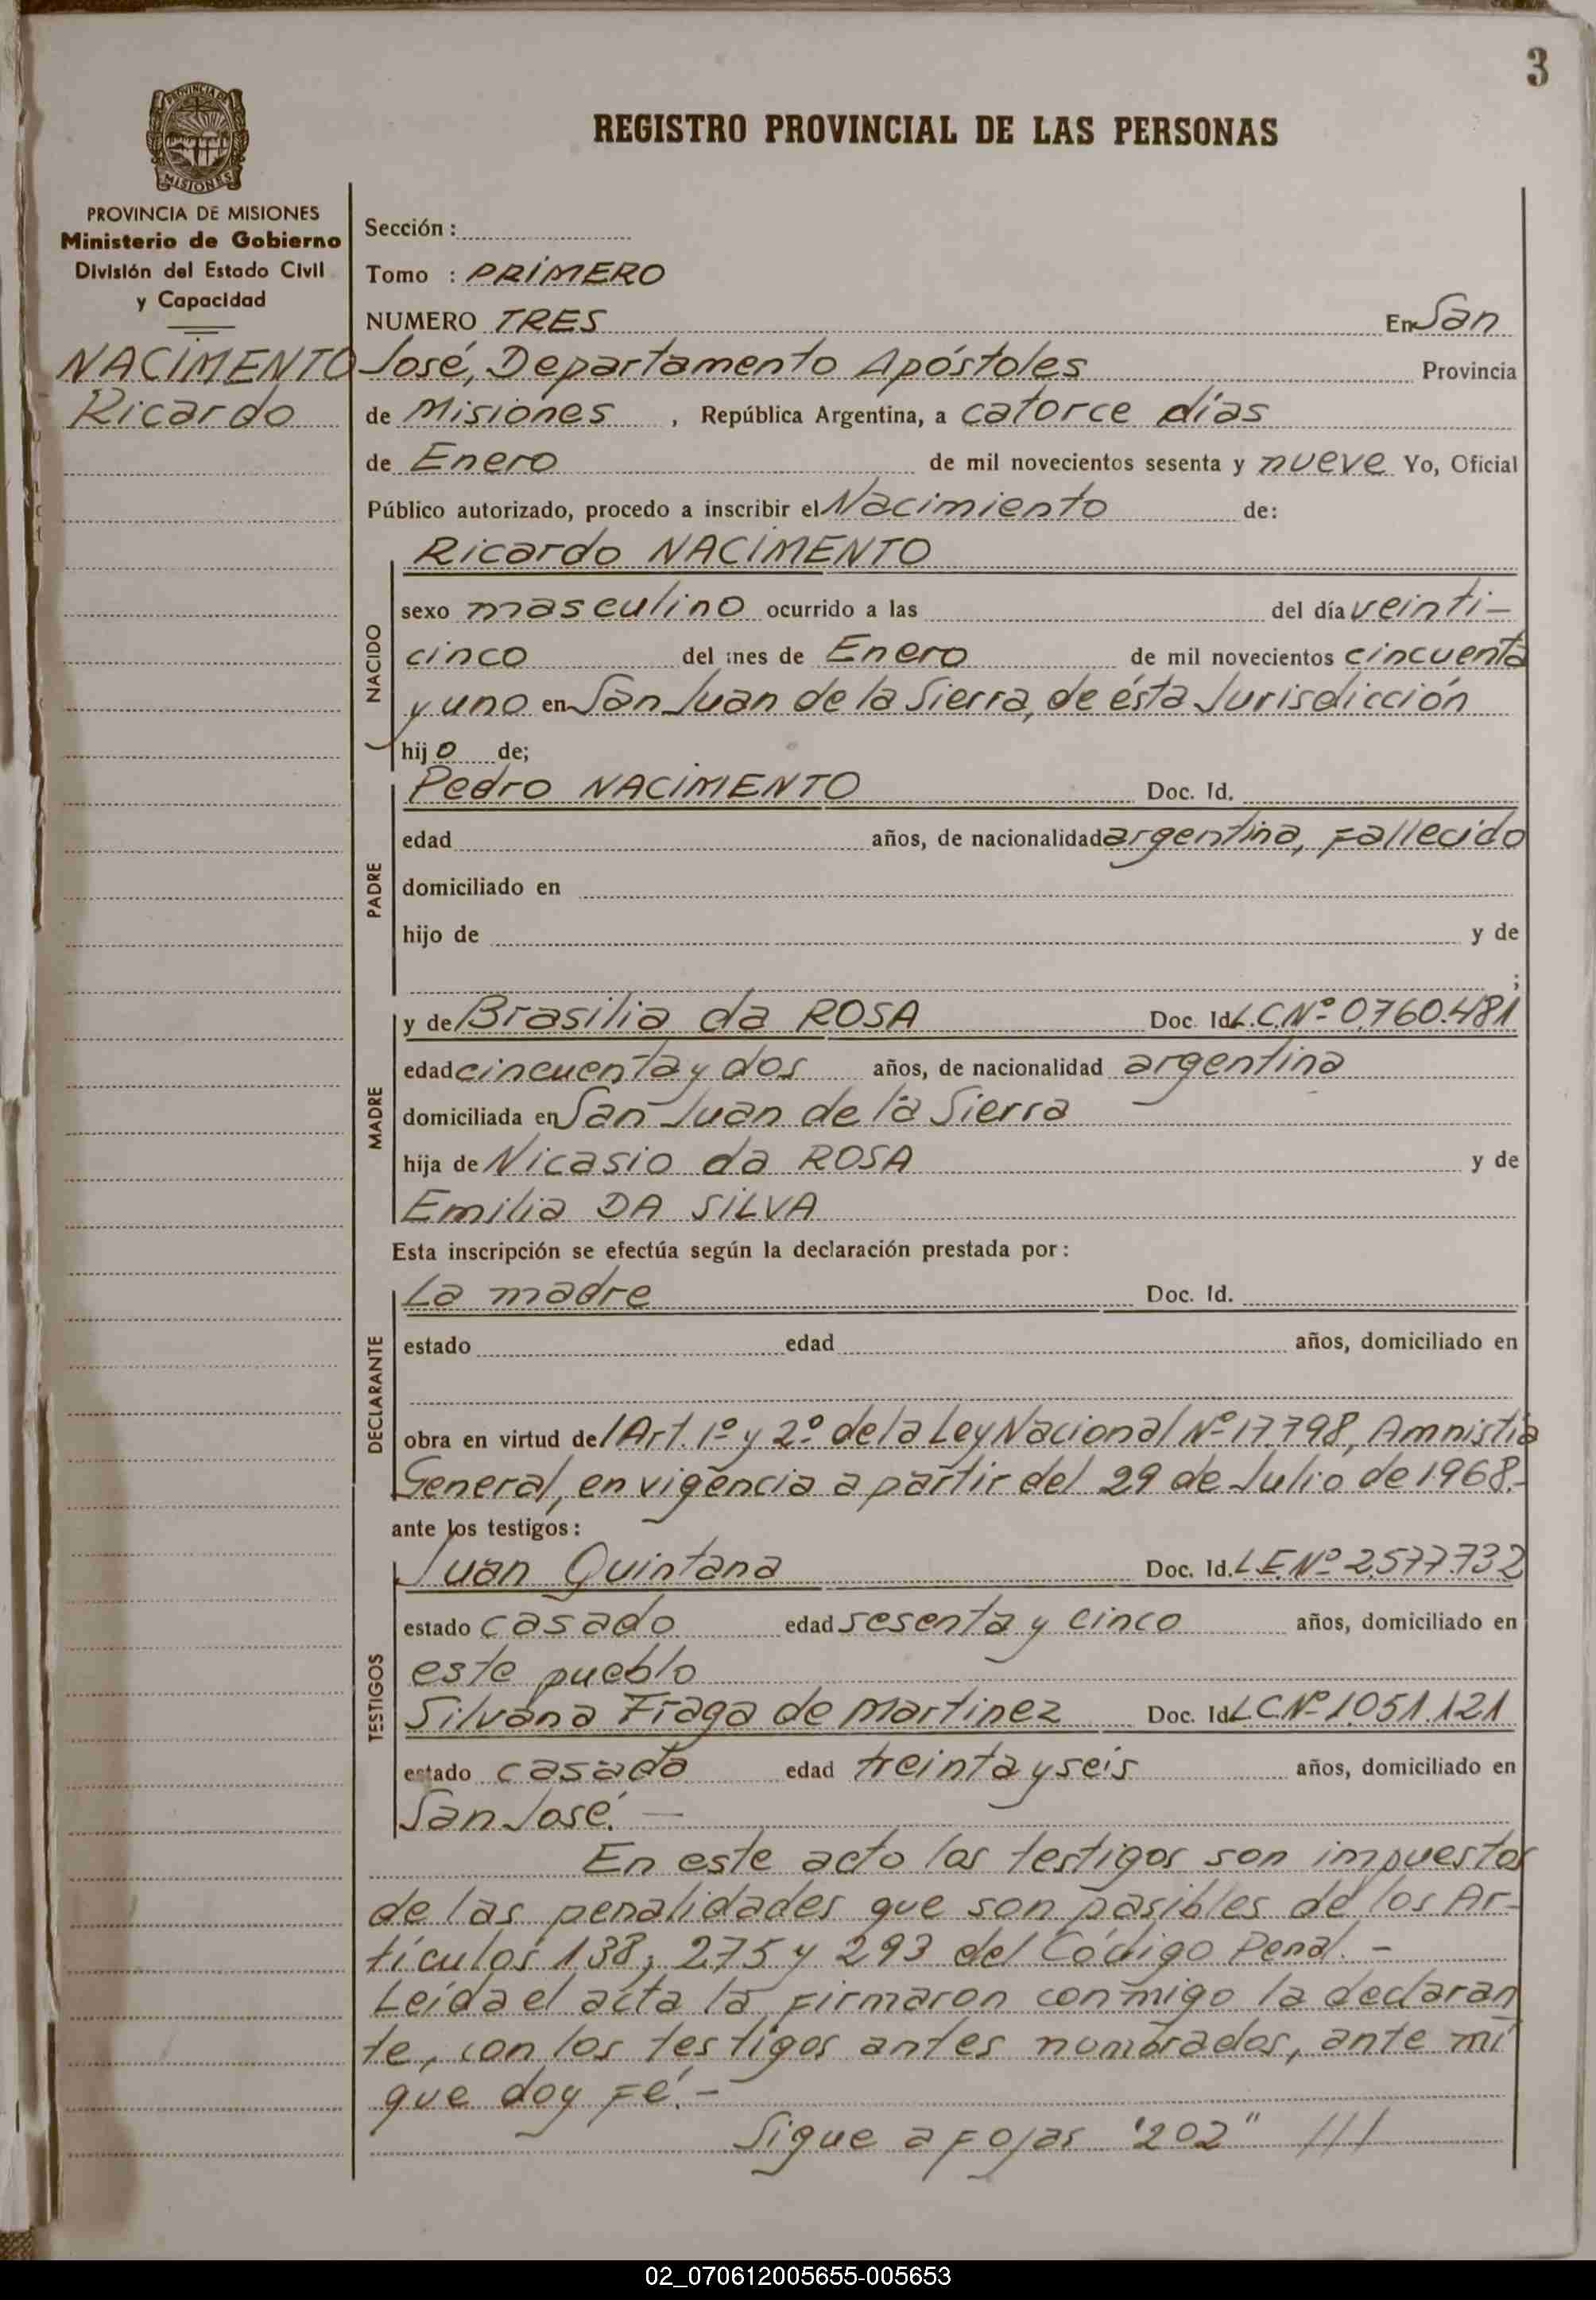 3
PROVINCIA DE
MISIONES
REGISTRO PROVINCIAL DE LAS PERSONAS
PROVINCIA DE MISIONES
Ministerio de Gobierno
División del Estado Civil
y Capacidad
NACIMENTO
Ricardo
Sección :
Tomo : PRIMERO
NUMERO TRES En San
José, Departamento Apóstoles Provincia
de Misiones , República Argentina, a catorce días
de Enero de mil novecientos sesenta y nueve Yo, Oficial
Público autorizado, procedo a inscribir el Nacimiento de:
NACIDO
Ricardo NACIMENTO
sexo masculino ocurrido a las del día veinti-
cinco del mes de Enero de mil novecientos cincuenta
y uno en San Juan de la Sierra, de ésta Jurisdicción
hijo de;
PADRE
Pedro NACIMENTO Doc. Id.
edad años, de nacionalidad argentina, fallecido
domiciliado en
hijo de y de
;
MADRE
y de Brasilia da ROSA Doc. Id. L.C.Nº 0.760.481
edad cincuenta y dos años, de nacionalidad argentina
domiciliada en San Juan de la Sierra
hija de Nicasio da ROSA y de
Emilia DA SILVA
Esta inscripción se efectúa según la declaración prestada por :
DECLARANTE
La madre Doc. Id.
estado edad años, domiciliado en
obra en virtud del Art. 1º y 2º de la Ley Nacional Nº 17.798, Amnistía
General, en vigencia a partir del 29 de Julio de 1968.-
ante los testigos :
TESTIGOS
Juan Quintana Doc. Id. L.E.Nº 2.577.732
estado casado edad sesenta y cinco años, domiciliado en
este pueblo
Silvana Fraga de Martinez Doc. Id. L.C.Nº 1.051.121
estado casada edad treinta y seis años, domiciliado en
San José.-
En este acto los testigos son impuestos
de las penalidades que son pasibles de los Ar-
tículos 138, 275 y 293 del Código Penal.-
Leída el acta la firmaron conmigo la declaran
te, con los testigos antes nombrados, ante mí
que doy fé.-
Sigue a fojas "202" ///
02_070612005655-005653